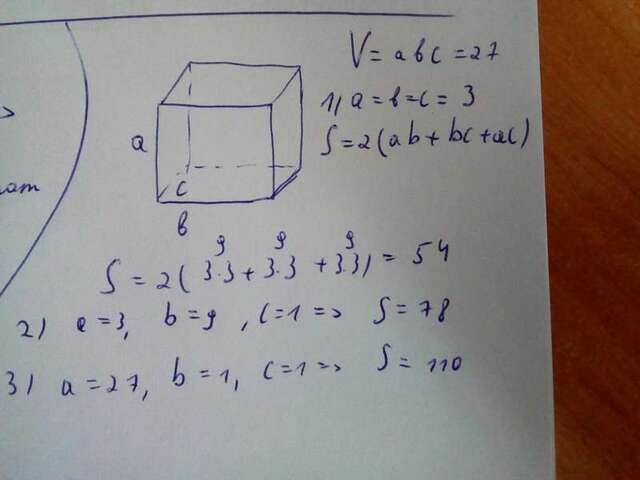 V = abc = 27
1) a = b = c = 3
S = 2(ab + bc + ac)
a
c
b
9 9 9
S = 2(3·3 + 3·3 + 3·3) = 54
2) a = 3, b = 9, c = 1 => S = 78
3) a = 27, b = 1, c = 1 => S = 110